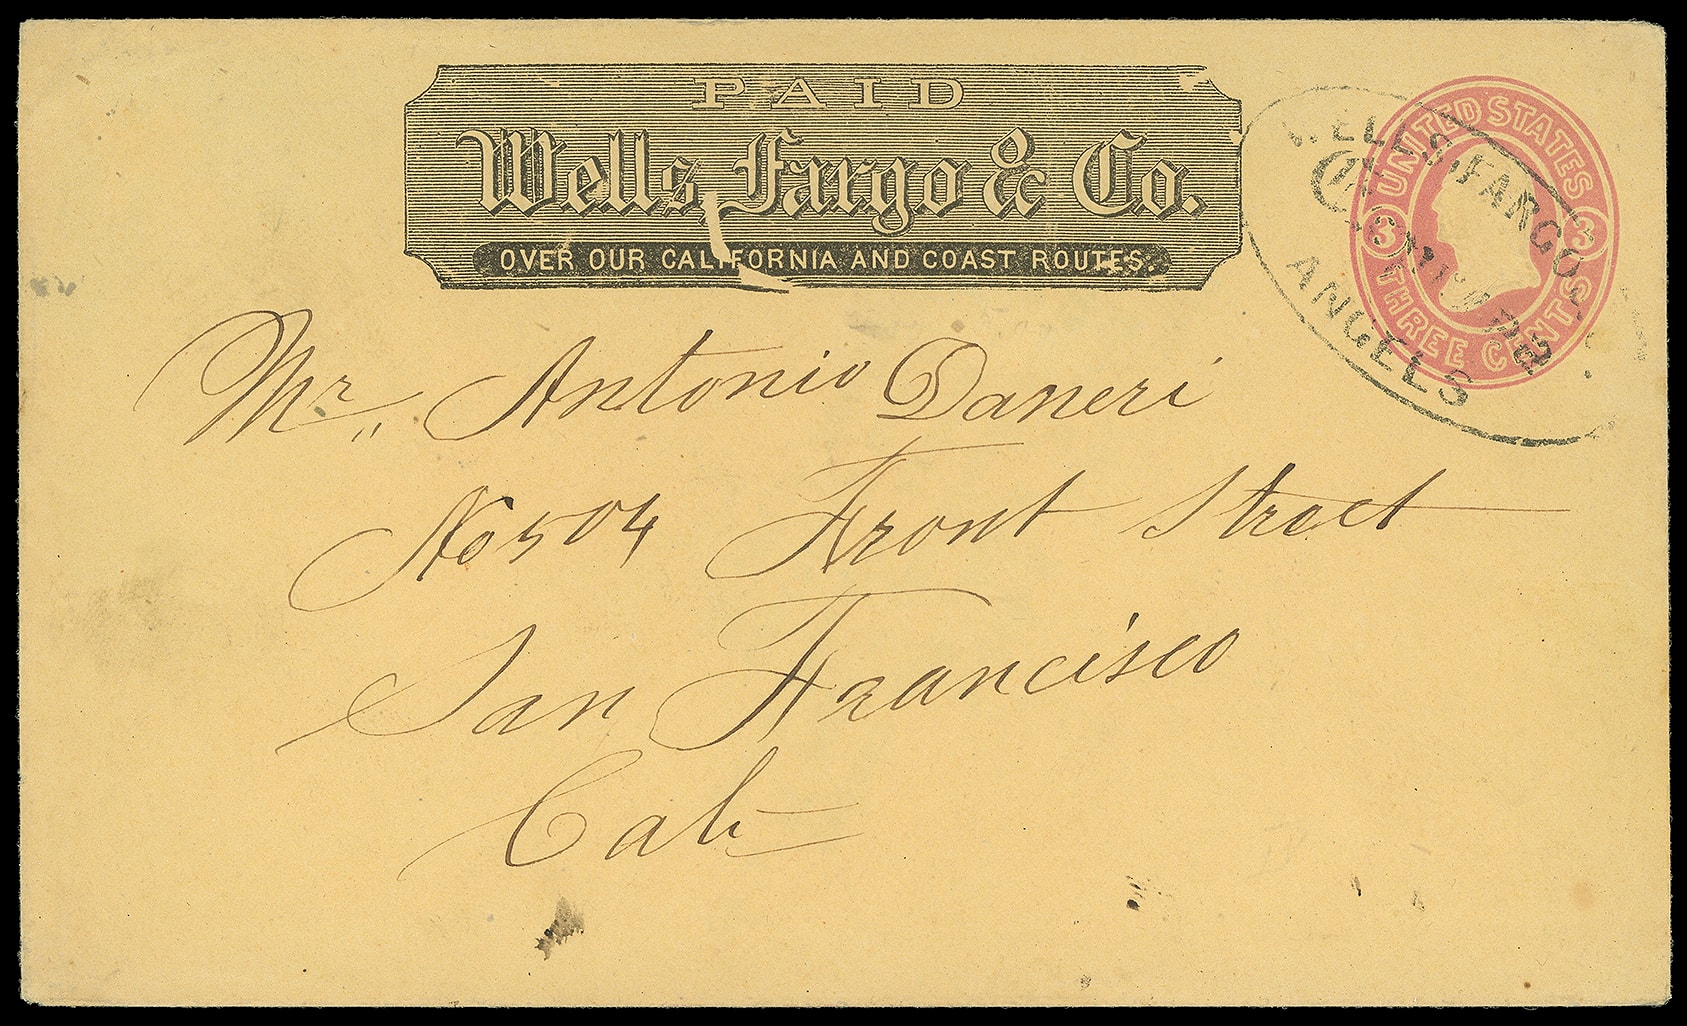 PAID
Wells, Fargo & Co.
OVER OUR CALIFORNIA AND COAST ROUTES.
UNITED STATES
3 3
THREE CENTS
WELLS, FARGO
ANGELS
Mr,, Antonio Daneri
No 504 Front Street
San Francisco
Cal